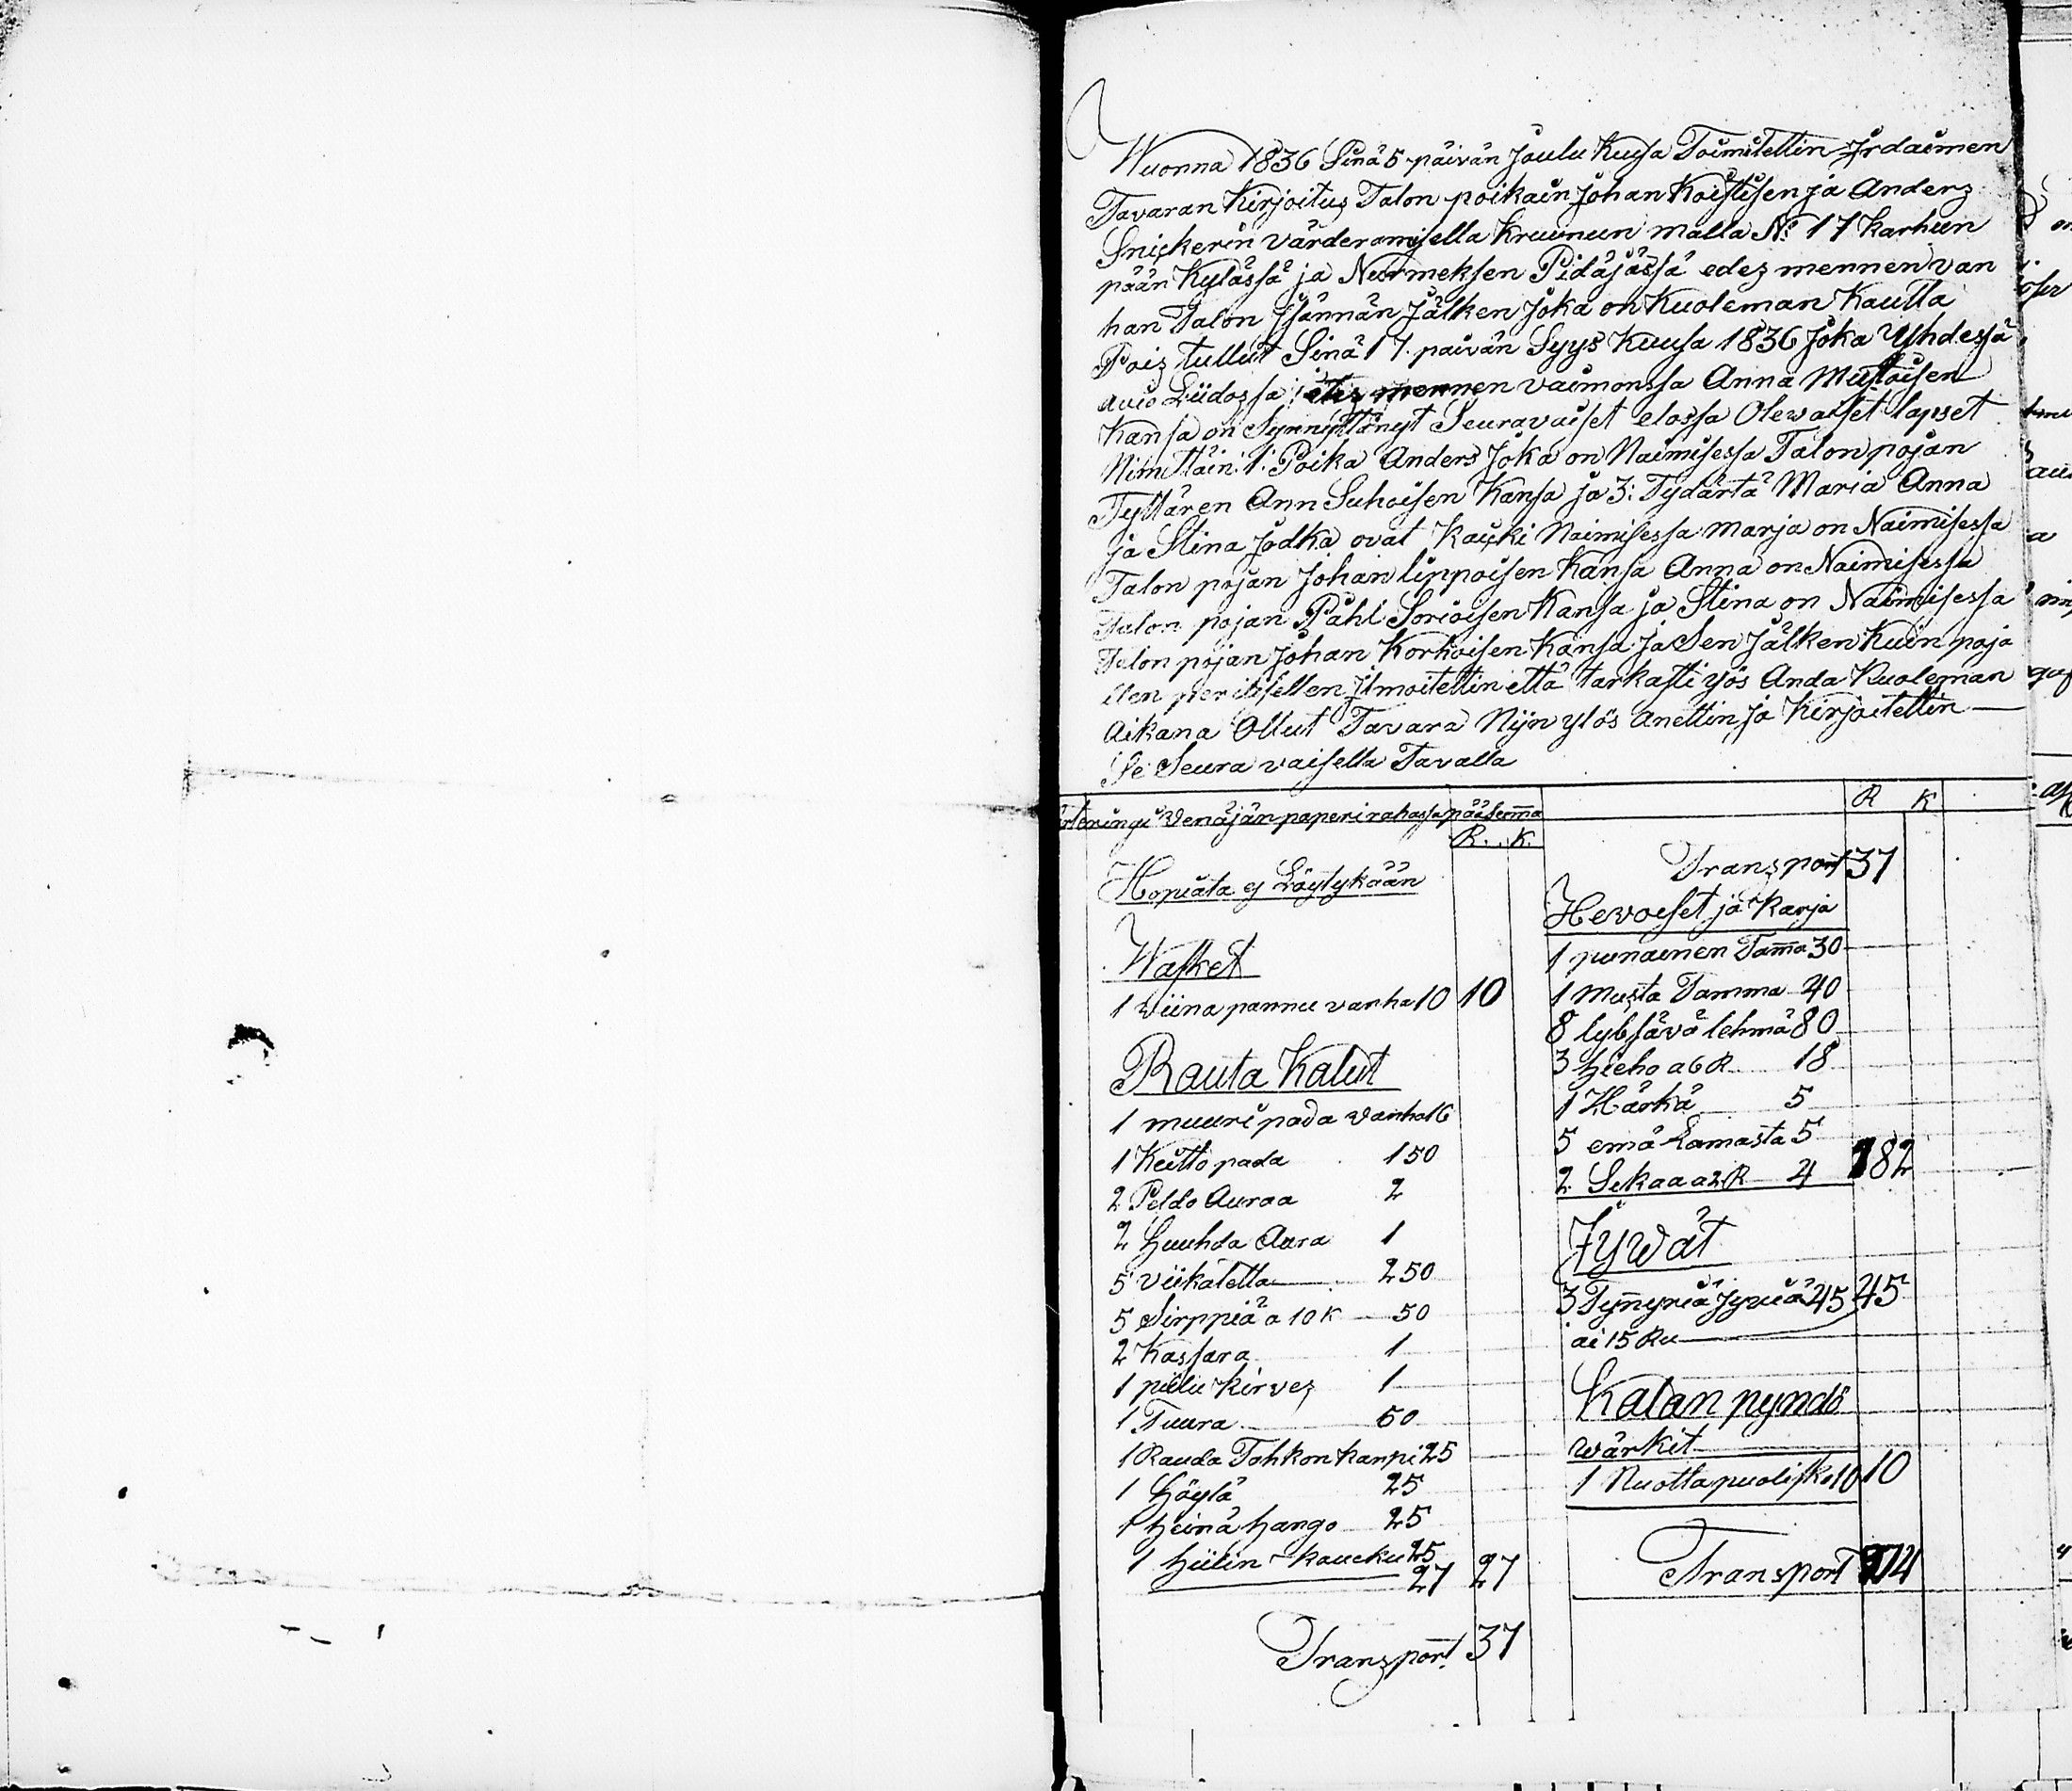 Wuonna 1836 Sinä 5 päivän Joulu Kuusa Toimitettin Irdaimen
Tavaran Kirjoitus Talon poikain Johan Koistisen ja Anders
Snickerin värderamisella Kruunun malla No: 17 Karhun
pään Kylässä ja Nurmeksen Pidäjässä edes mennen van
han Talon Isännän Jälken Joka on Kuoleman Kautta
Pois tullut Sinä 17. päivän Syys Kuusa 1836 Joka Yhdessä
avio Liidossa edes mennen vaimonssa Anna Mustoisen
Kansa on Synnyttänyt Seuravaiset elossa Olewaiset lapset
Nimittäin: 1: Poika Anders Joka on Naimisessa Talon pojan
Tyttären Ann Suhoisen Kansa ja 3: Tydärtä Maria Anna
ja Stina Jodka ovat Kaicki Naimisessa Marja on Naimisessa
Talon pojan Johan lippoisen Kansa Anna on Naimisessa
Talon pojan Påhl Sorioisen Kansa ja Stina on Naimisessa
Talon pojan Johan Korhoisen Kansa Ja Sen Jälken Kuin poja
llen perillisellen Ilmoitettin että tarkasti yös Anda Kuoleman
Aikana Ollut Tavara Nijn ylös anettin Ja Kirjoitettin
Se Seura vaisella Tavalla
Venäjän paperi rahassa pääsumma
R. K.
Hopiata ej Löytykään
Wasket
1 Viina pannu vanha 10 10
Rauta Kalut
1 muuri pada vanha 16
1 Keitto pada 1 50
2 Peldo Auraa 2
2 Huuhda Aura 1
5 viikatetta 2 50
5 Sirppiä a 10 K 50
2 Kassara 1
1 piilu Kirves 1
1 Tuura 50
1 Rauda Tahkon kampi 25
1 Höylä 25
1 heinä hango 25
1 hiilin koucku 25
27 27
Transport 37
R K
Transport 37
Hevoiset ja Karja
1 punainen Tamma 30
1 Musta Tamma 40
8 lybsävä lehmä 80
3 hieho a 6 R 18
1 Härkä 5
5 emä Lamasta 5
2 Sikaa a 2 R 4 182
Jywät
3 Tynyriä Jyviä 45 45
ai 15 Ru
Kalan pyndö
wärkit
1 Nuotta puolisko 10 10
Transport 274